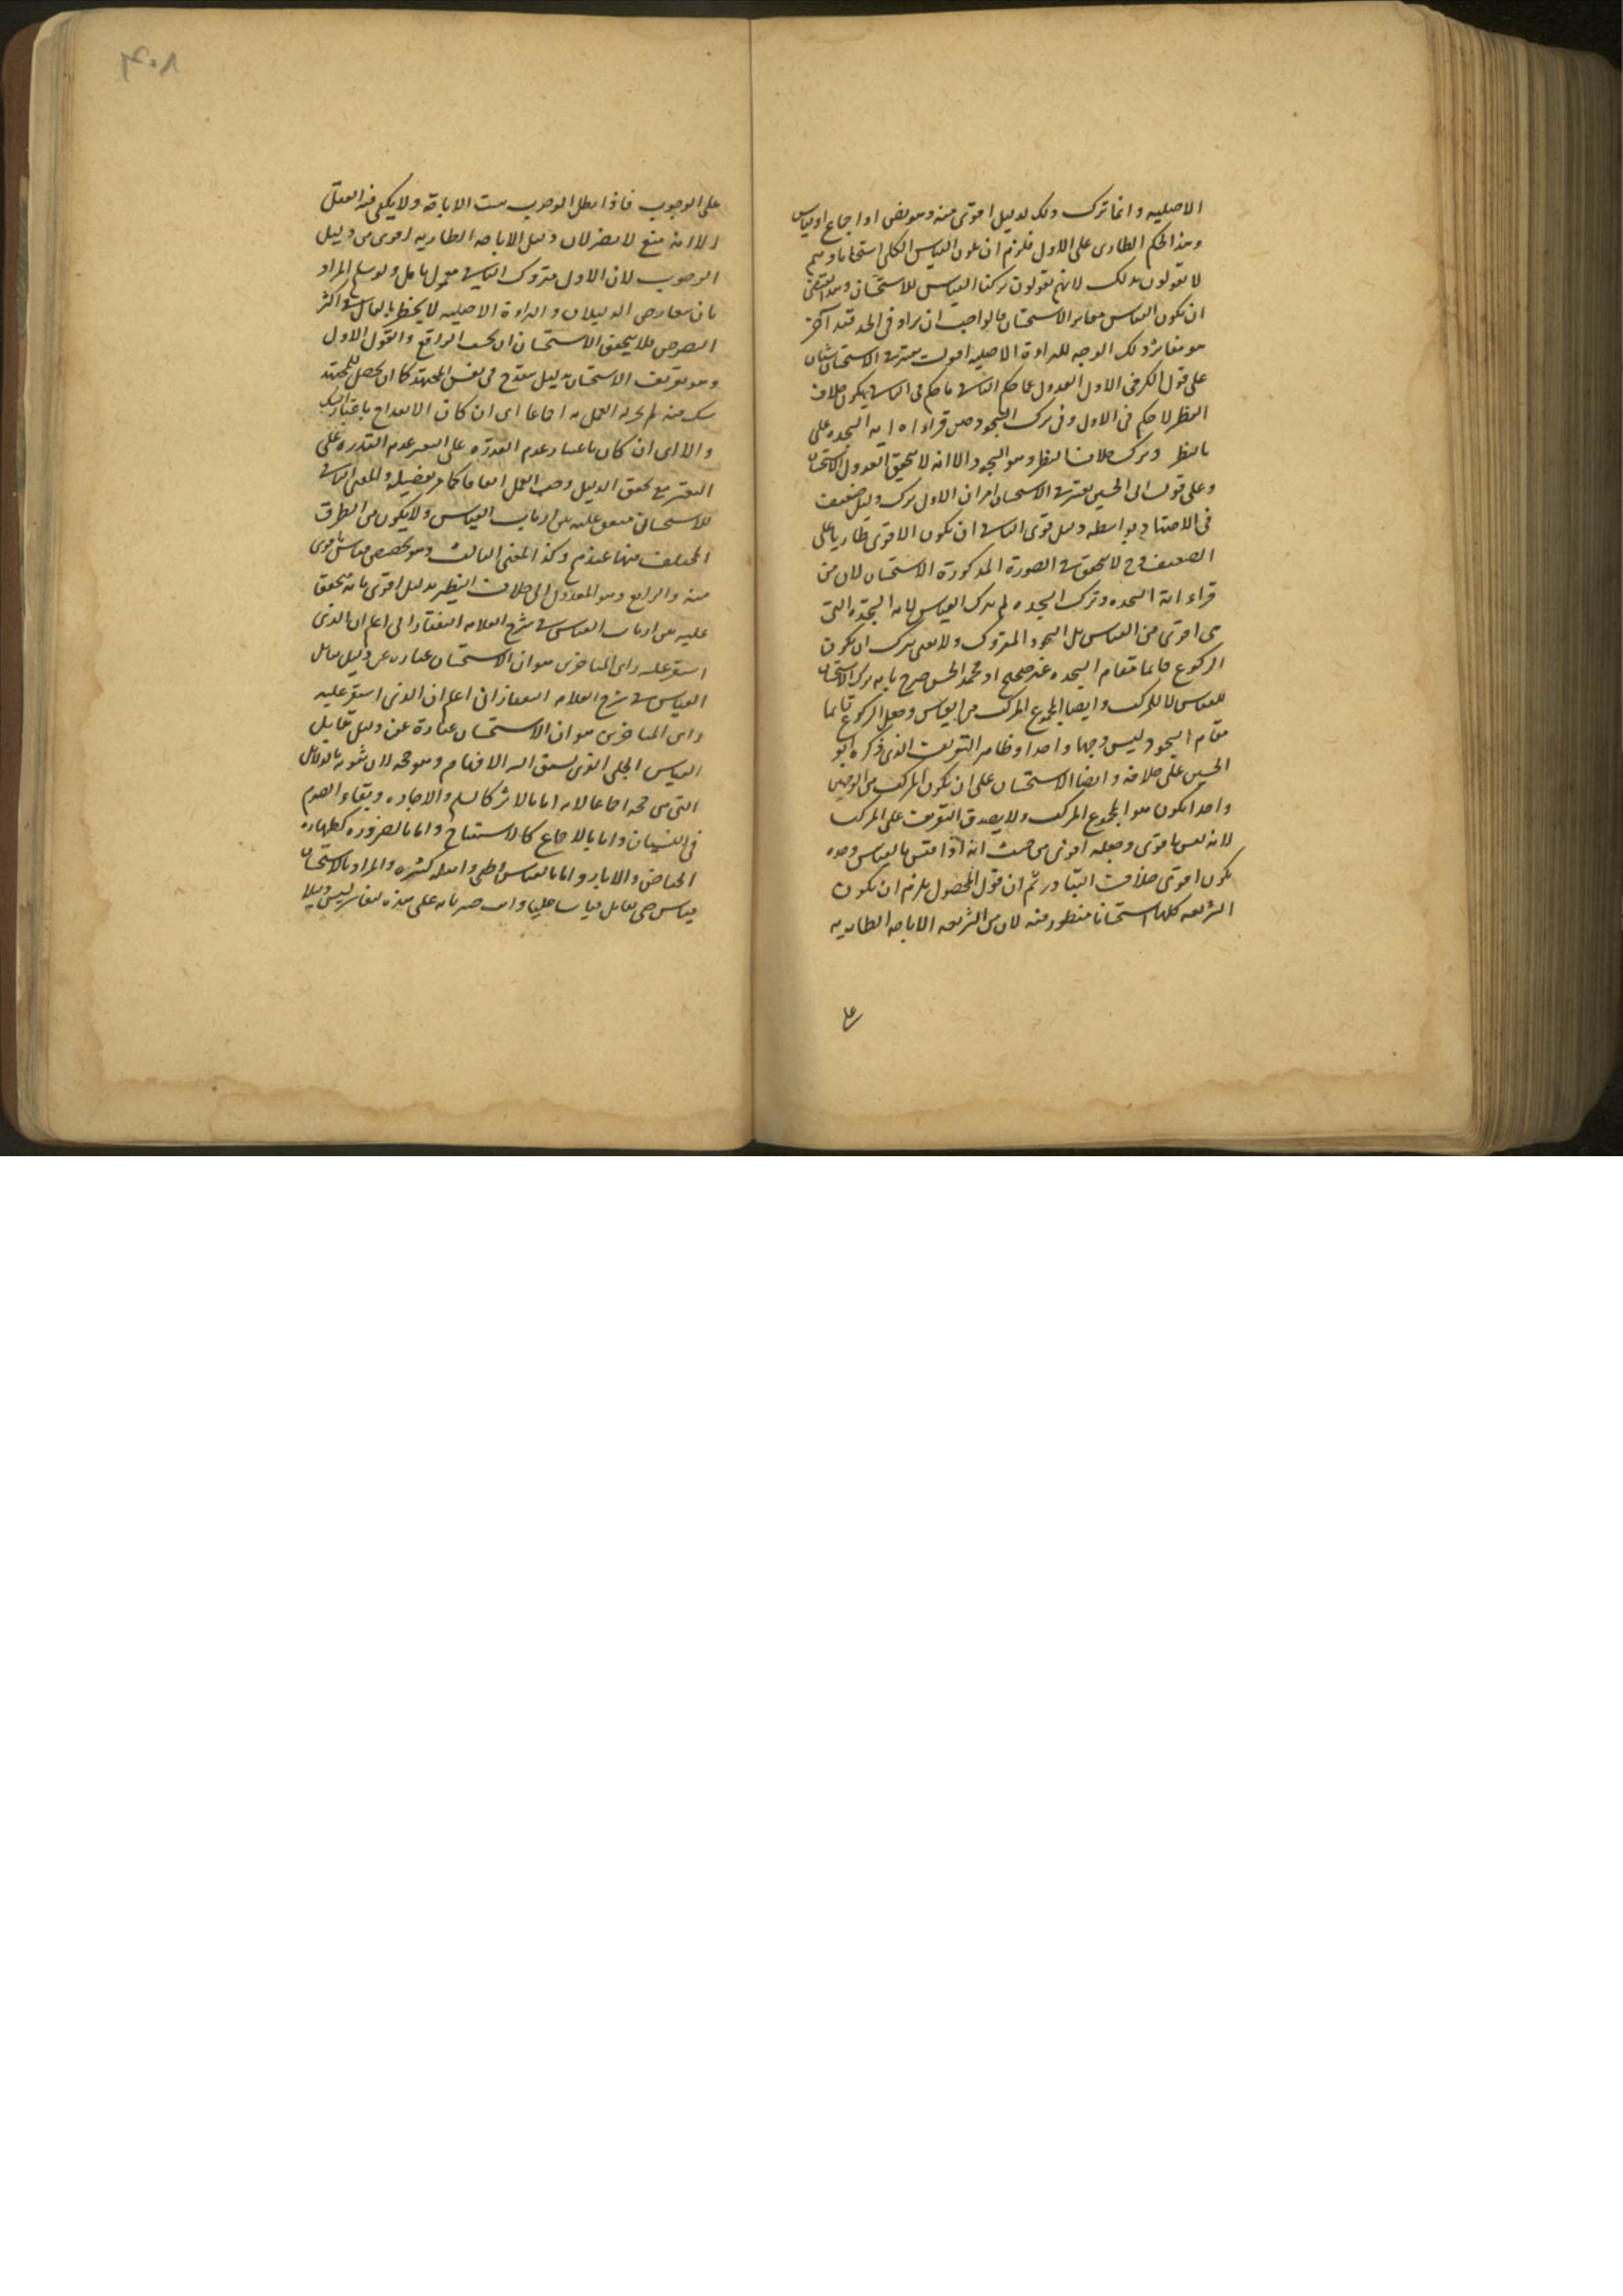 الاصليه وانما ترك ذلك لدليل اقوى منه وهو نص او اجماع او قياس
وهذا الحكم الطارى على الاول فلزم ان يكون القياس الكلى استحسانا وهم
لا يقولون بذلك لانهم يقولون تركنا القياس للاستحسان وهذا يقتضى
ان يكون القياس مغايرا للاستحسان فالواجب ان يزاد فى الحد قيد آخر
هو مغايرة ذلك الوجه للبراءة الاصليه اقول يعتبر فى الاستحسان
على قول الكرخى الاول العدول عما حكم الثانى ما حكم فى الثانى يكون خلاف
النظر لا حكم فى الاول وفى ترك السجود حين قراءة اية السجده على
بالنظر وترك خلاف النظر وهو السجود الا انه لا يتحقق العدول الاستحسان
وعلى قول ابى الحسين يعتبر فى الاستحسان امران الاول ترك دليل ضعيف
فى الاجتهاد بواسطه دليل قوى الثانى ان يكون الاقوى طاريا على
الضعيف وح لا يتحقق فى الصورة المذكورة الاستحسان لان من
قراءة اية السجده وترك السجده لم يترك القياس لاية السجده التى
هى اقوى من القياس بل السجود المتروك ولا معنى لترك ان يكون
الركوع قائما مقام السجده غير صحيح اذ محمد الحسن صرح بانه ترك الاستحسان
للقياس لا للمركب وايضا المجموع المركب من القياس وجعل الركوع قائما
مقام السجود ليس وجها واحدا وظاهر التعريف الذى ذكره ابو
الحسين على خلافه وايضا الاستحسان على ان يكون المركب من الوجهين
واحدا يكون هو المجموع المركب ولا يصدق التعريف على المركب
لانه ليس باقوى وجعله اقوى من حيث انه اذا قيس بالقياس وحده
يكون اقوى خلاف المتبادر ثم ان قول المحصول يلزم ان يكون
الشريعه كلها استحسانا منظور فيه لان من الشريعه الاباحه الطاريه
على
٤٠٨
على الوجوب فاذا بطل الوجوب بقيت الاباحة ولا يكفى فيه العقل
الا انه منع لا يضر لان دليل الاباحه الطاريه اقوى من دليل
الوجوب لان الاول متروك الثانى معمول بالعمل ولو سلم المراد
بان تعارض الدليلان والبراءة الاصليه لا يخطر بالبال فى اكثر
النصوص فلا يتحقق الاستحسان ان بحسب الواقع والقول الاول
وهو تعريف الاستحسان بدليل ينقدح فى نفس المجتهد كان ان يحصل للمجتهد
شك فيه لم يجز له العمل به اجماعا اى ان كان الانقداح باعتبار الشك
والا اى ان كان باعتبار عدم القدره على التعبير عدم القدره على
التعبير مع تحقق الدليل وجب العمل اتفاقا كما مر تفصيله والمعنى الثانى
للاستحسان متفق عليه بين ارباب القياس ولا يكون من الطرق
المختلف فيها عندهم وكذا المعنى الثالث وهو تخصيص قياس باقوى
منه والرابع وهو العدول الى خلاف النظير بدليل اقوى بانه متفق
عليه بين ارباب القياس فى شرح العلامه التفتازانى اعلم ان الذى
استقر عليه راى المتاخرين هو ان الاستحسان عباره عن دليل يقابل
القياس فى شرح العلامه التفتازانى اعلم ان الذى استقر عليه
راى المتاخرين هو ان الاستحسان عبارة عن دليل تقابل
القياس الجلى الذى يسبق اليه الافهام وهو حجة لان ثبوته بالدلائل
التى هى حجه اجماعا لانه اما بالاثر كالسلم والاجاره وبقاء الصوم
فى النسيان واما بالاجماع كالاستصناع واما بالضروره كطهاره
الحياض والابار واما بالقياس الخفى وامثلته كثيره والمراد بالاستحسان
قياس خفى يقابل قياسا جليا وانت خبير بانه على هذه التفاسير ليس دليلا